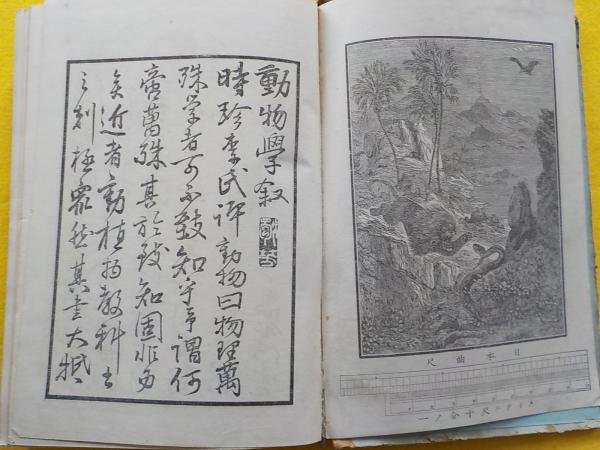 日本曲尺
メートル尺十分ノ一
動物學叙
時珍李氏評動物曰物理萬
殊学者可不致知乎予謂何
啻萬殊其於致知固非易
矣近者動植物教科書
之刻極衆然其書大抵